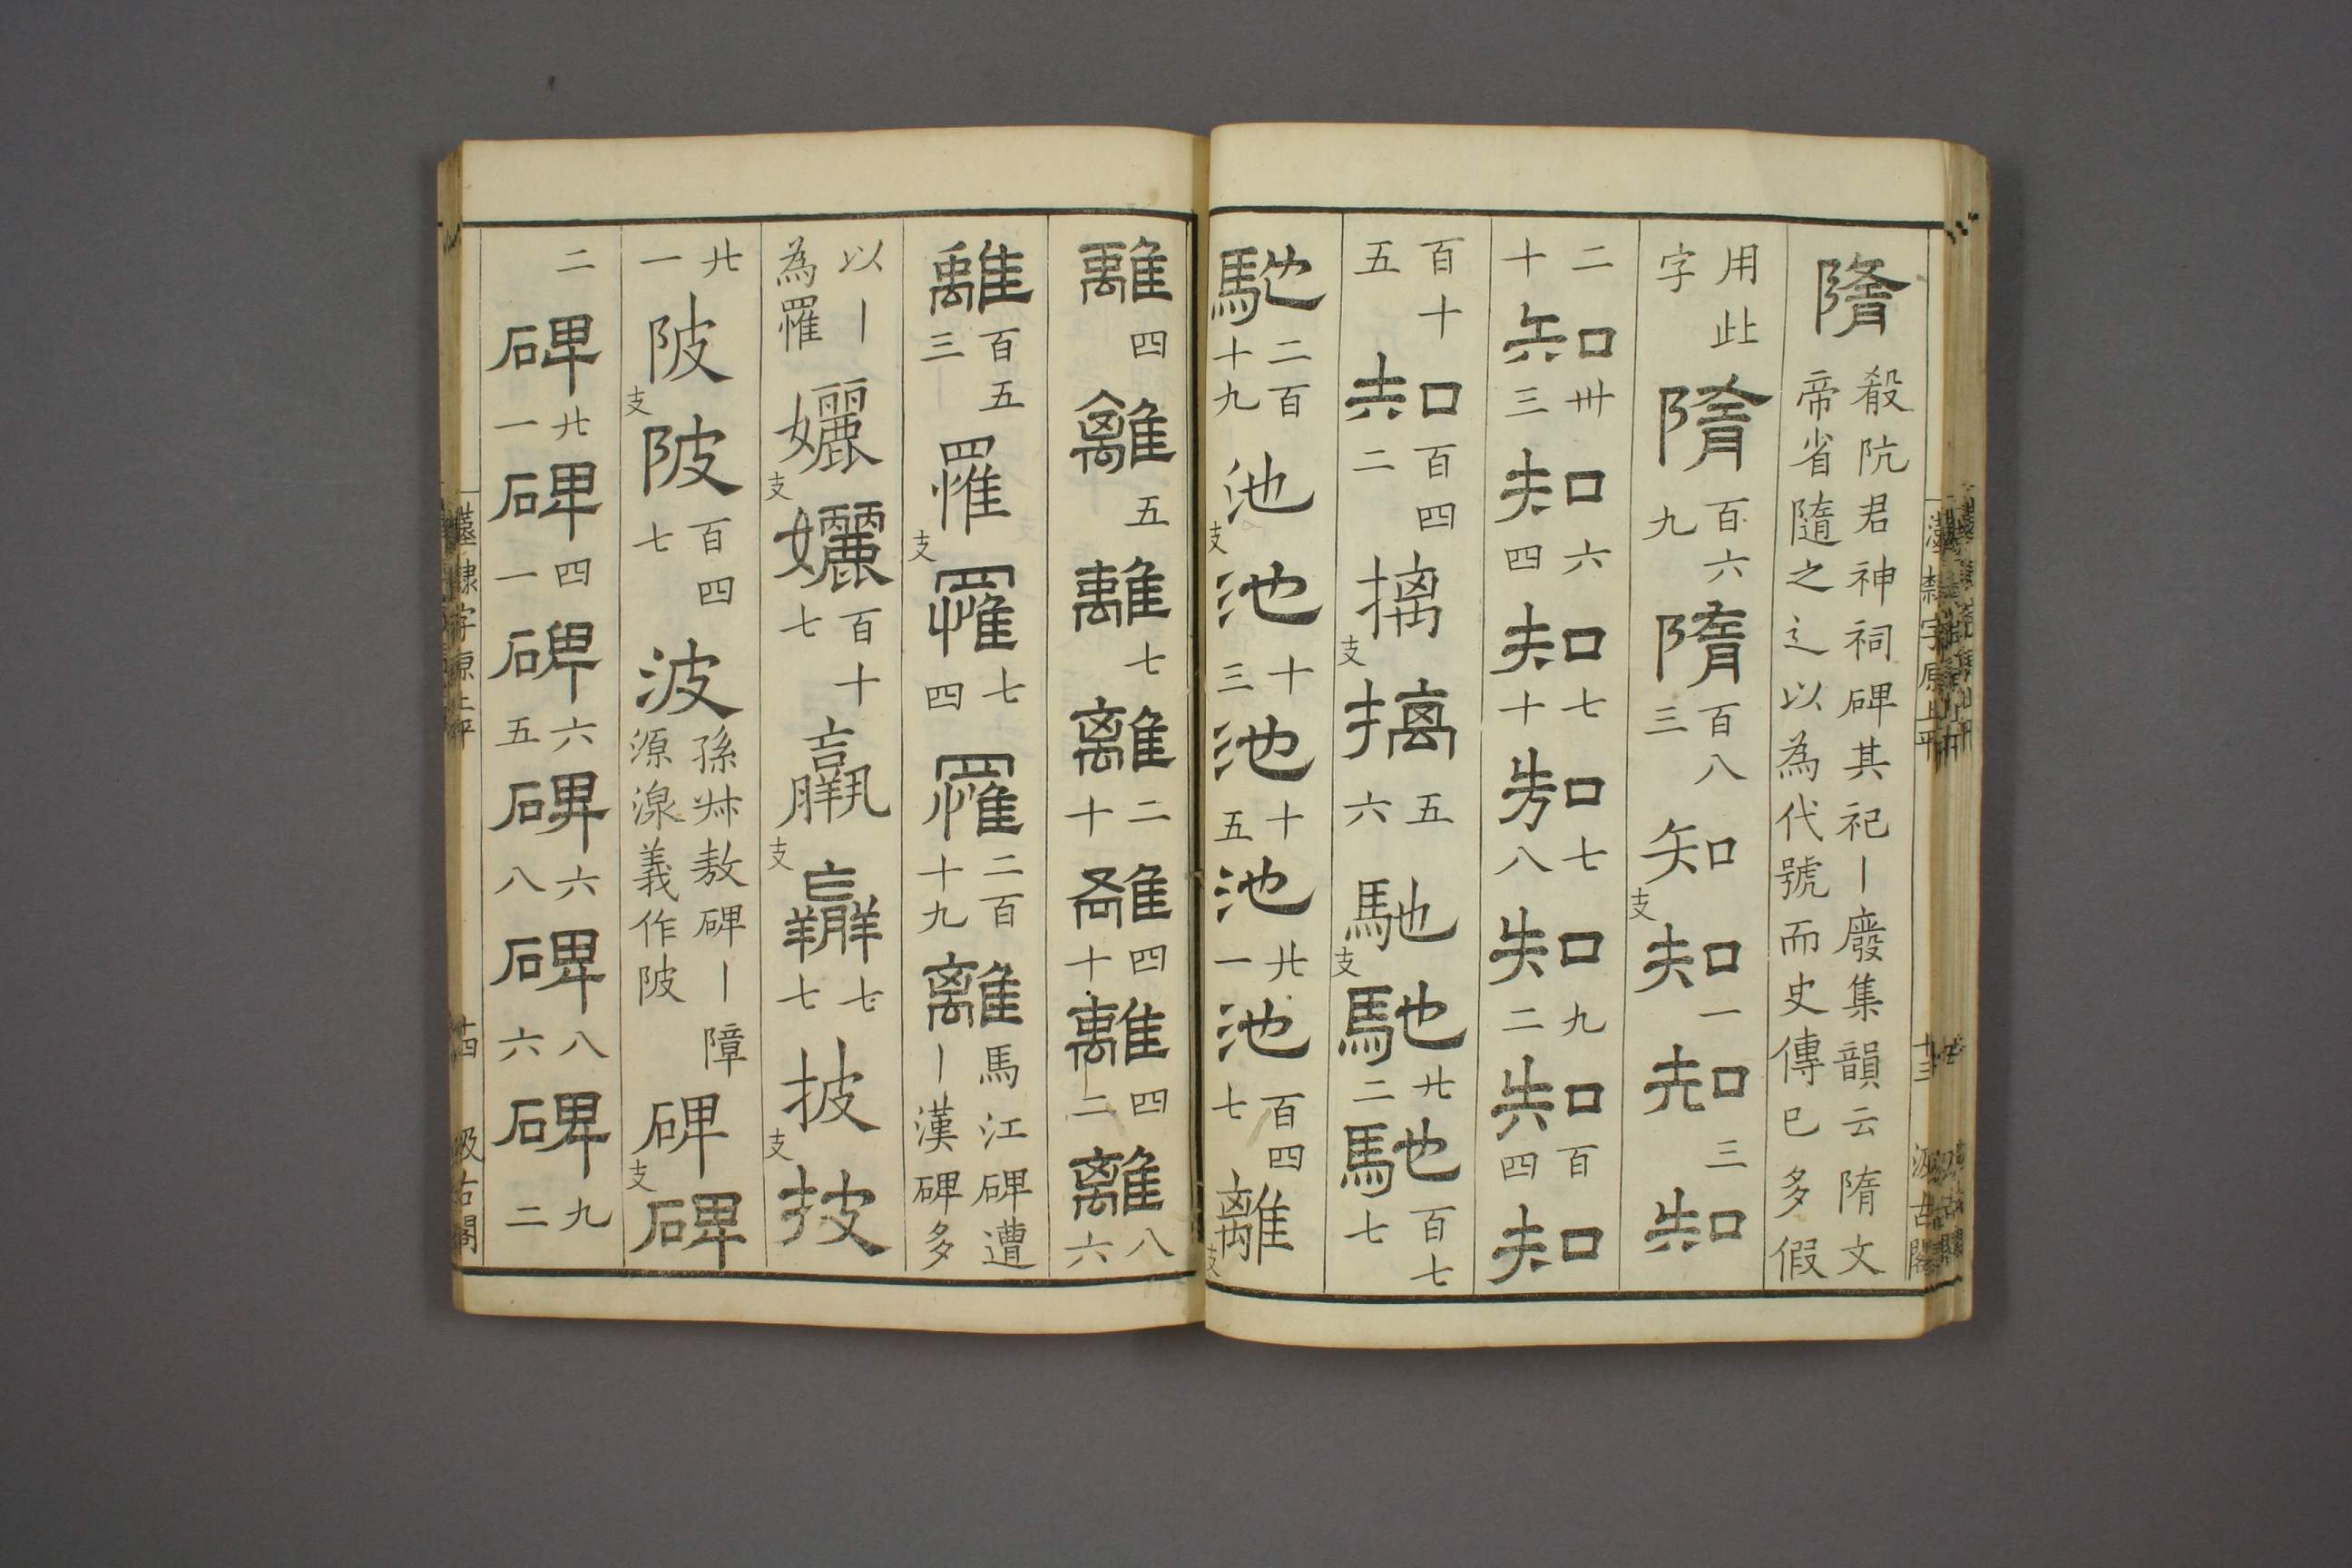 隋 殽阬君神祠碑其祀丨廢集韻云隋文帝省隨之辶以為代號而史傳已多假
用此字 隋 百六九 隋 百八三 知 支 知 一 知 三 知
二十 知 卅三 知 六四 知 七十 知 七八 知 九二 知 百四 知
百十五 知 百四二 摛 支 摛 五六 馳 支 馳 廿二 馳 百七七
馳 二百十九 池 支 池 十三 池 十五 池 廿一 池 百四七 離 支
離 四 離 五 離 七 離 二十 離 四十 離 四二 離 八六
離 百五三 罹 支 罹 七四 罹 二百十九 離 馬江碑遭丨漢碑多
以丨為罹 孋 支 孋 百十七 羸 支 羸 七七 披 支 披
廿一 陂 支 陂 百四七 波 孫叔敖碑丨障源湶義作陂 碑 支 碑
二 碑 廿一 碑 四一 碑 六五 碑 六八 碑 八六 碑 九二
漢隸字原上平 十三 汲古閣
漢隸字原上平 十四 汲古閣